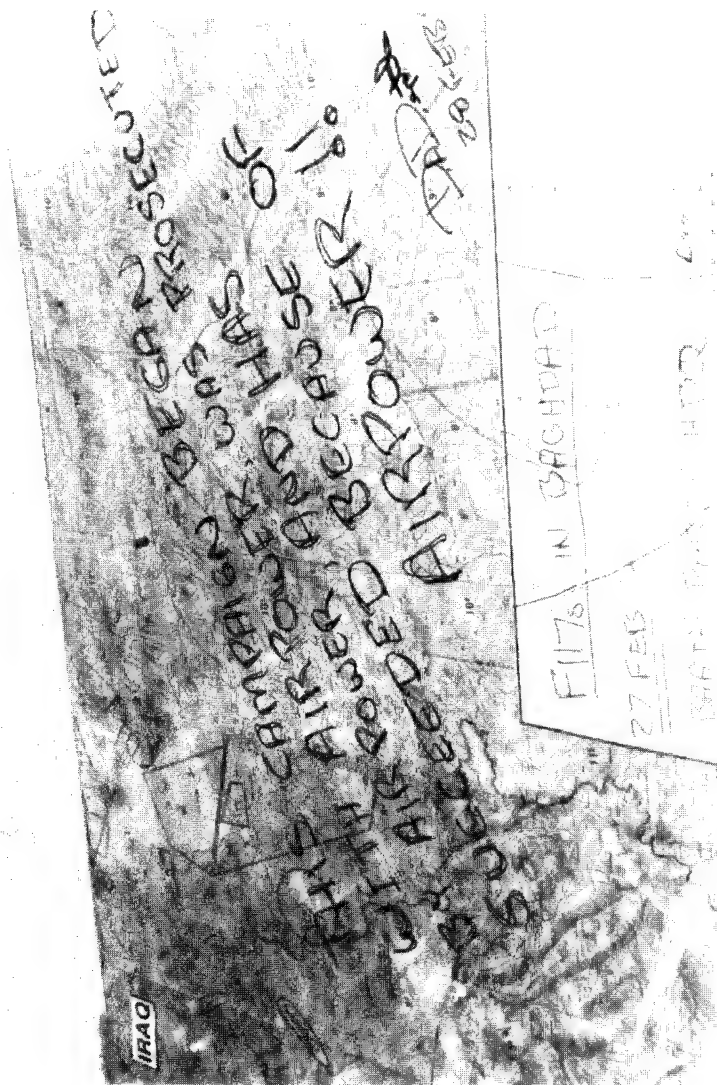 IRAQ
THIS CAMPAIGN BEGAN
WITH AIRPOWER, WAS PROSECUTED
BY AIRPOWER, AND HAS
SUCCEEDED BECAUSE OF
AIRPOWER!!
28 FEB
F117s IN BAGHDAD
27 FEB